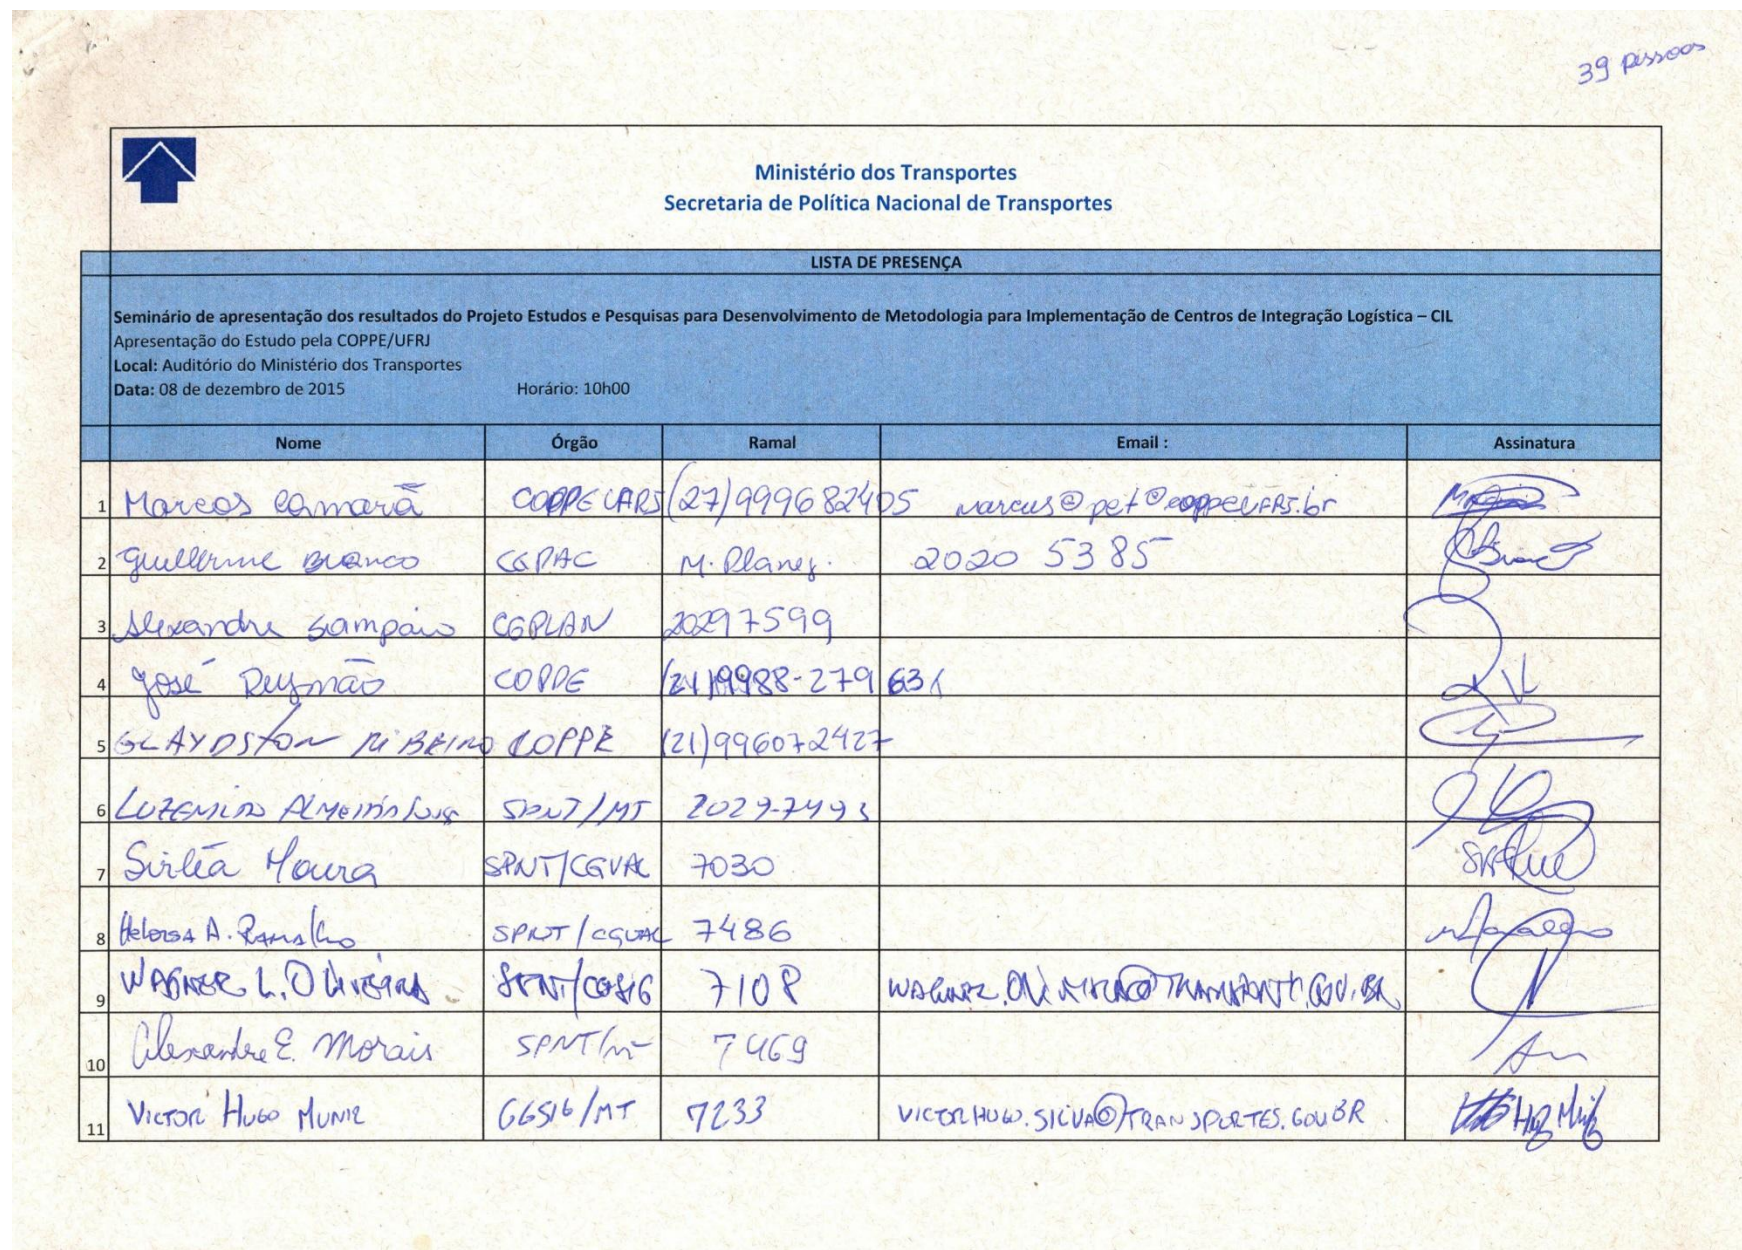 39 pessoas
Ministério dos Transportes
Secretaria de Política Nacional de Transportes
LISTA DE PRESENÇA
Seminário de apresentação dos resultados do Projeto Estudos e Pesquisas para Desenvolvimento de Metodologia para Implementação de Centros de Integração Logística – CIL
Apresentação do Estudo pela COPPE/UFRJ
Local: Auditório do Ministério dos Transportes
Data: 08 de dezembro de 2015 Horário: 10h00
Nome Órgão Ramal Email : Assinatura
1 Marcos Camarã COPPE UFRJ (27)999682405
2 Guilherme Branco CGPAC M. Planej. 2020 5385
3 Alexandre Sampaio CGPLAN 20297599
4 José Reymão COPPE (21)9988-279 631
5 GLAYDSTON RIBEIRO COPPE (21)996072427
6 LUZEMILDO ALMEIDA SPNT/MT 2029-7493
7 Sirléa Moura SPNT/CGVAL 7030
8 Heloisa A. Ramalho SPNT/CGVAL 7486
9 WAGNER L. OLIVEIRA SPNT/CGSIG 7108
10 Alexandre E. Morais SPNT/MT 7469
11 VICTOR HUGO MUNIZ GGSIG/MT 7233 VICTORHUGO.SILVA@TRANSPORTES.GOV.BR